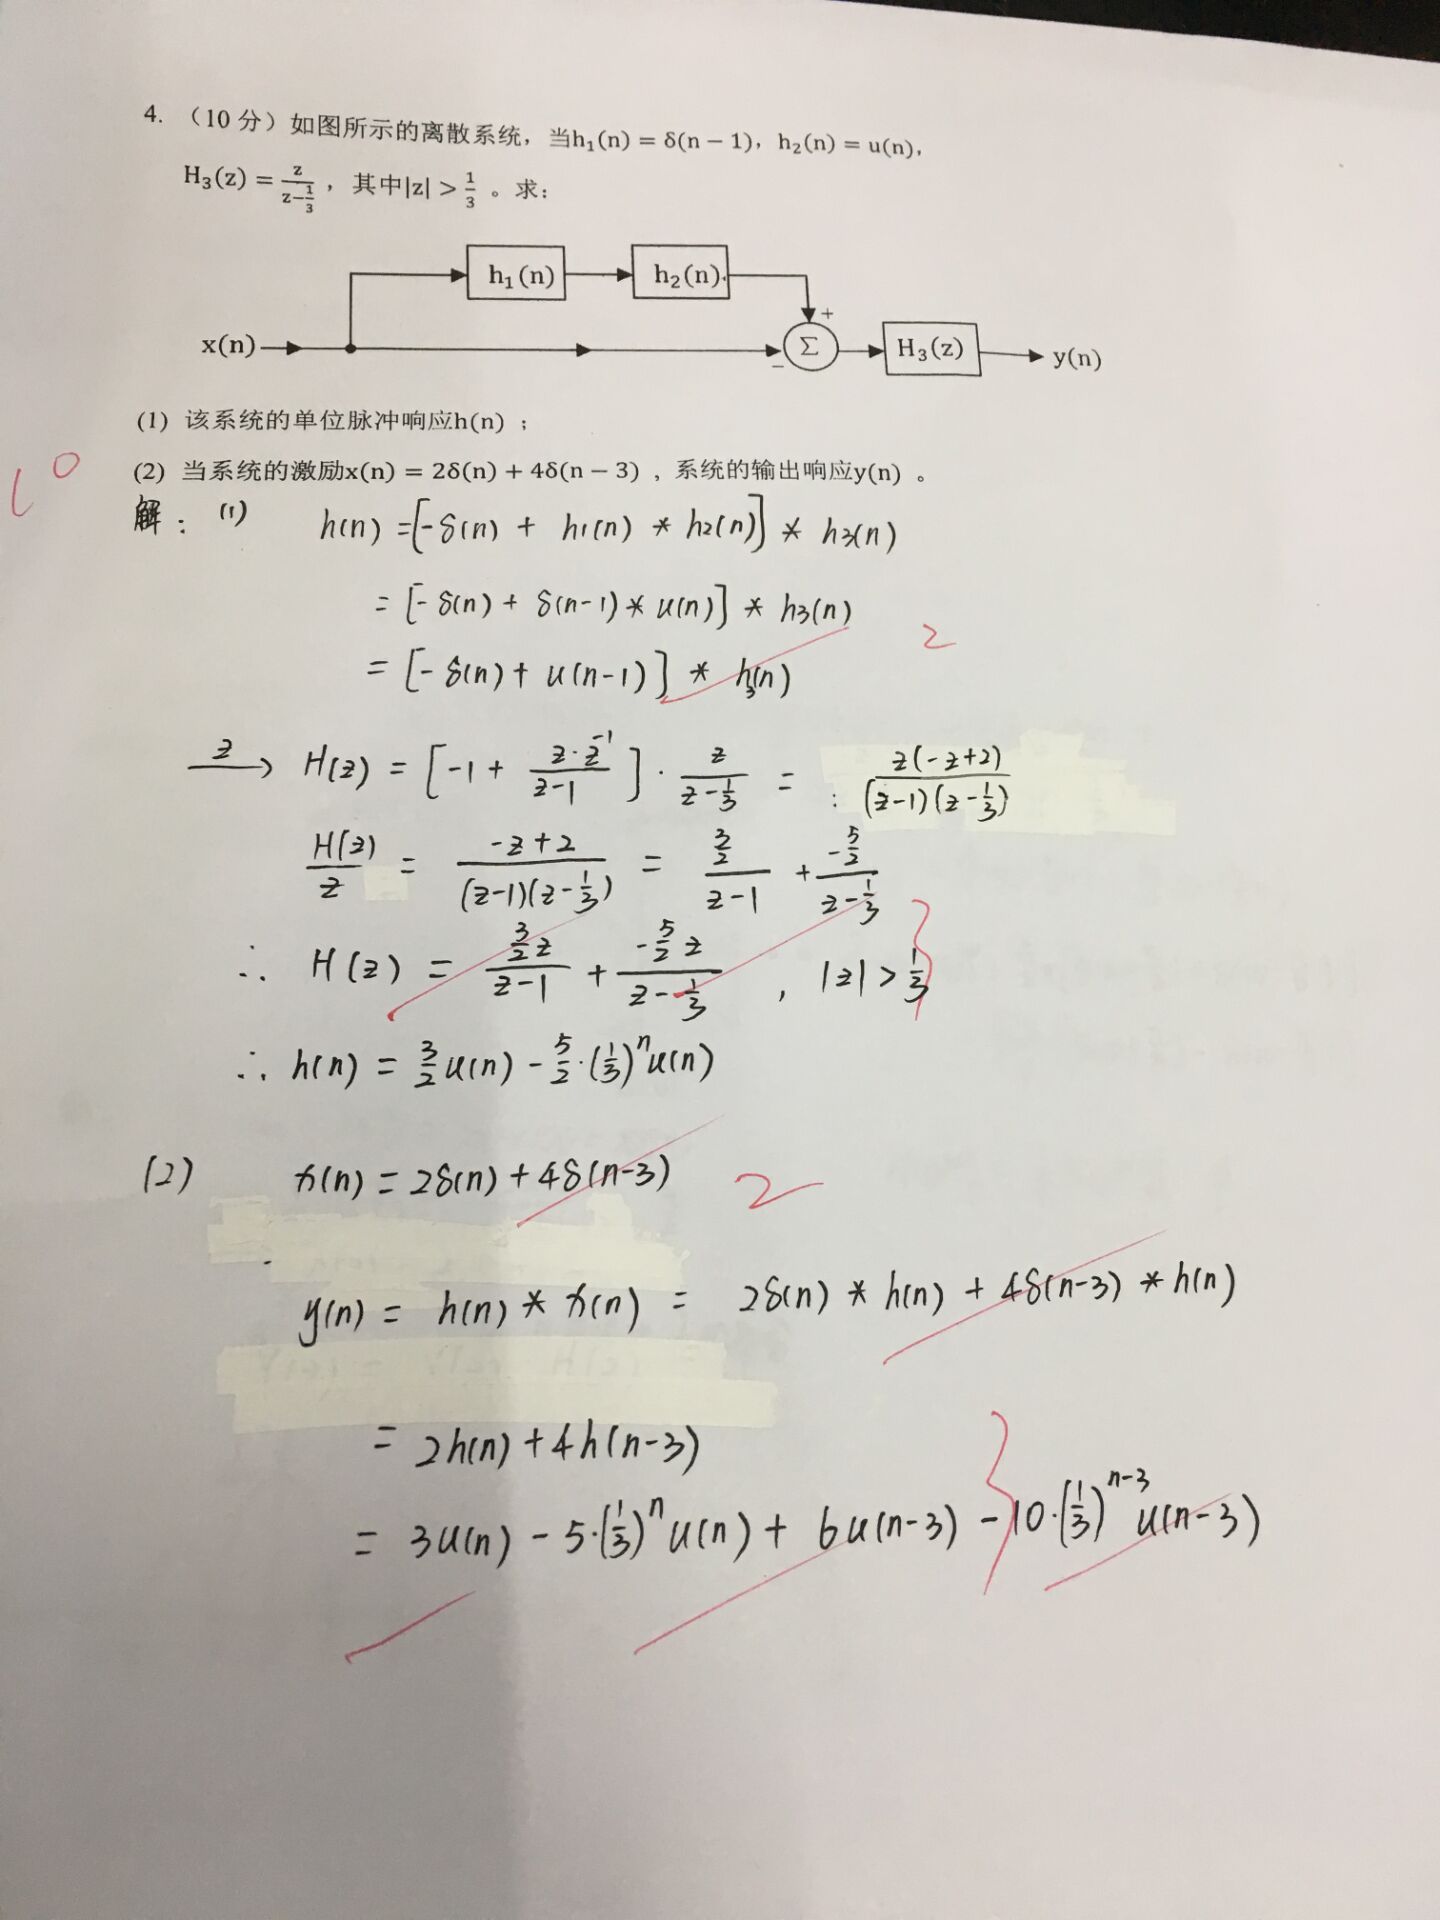 4. （10 分）如图所示的离散系统，当h₁(n) = δ(n − 1)，h₂(n) = u(n)，
H₃(z) = z/(z−1/3)，其中|z| > 1/3 。求：
h₁(n) h₂(n)
+
x(n) Σ H₃(z) y(n)
−
(1) 该系统的单位脉冲响应h(n)；
(2) 当系统的激励x(n) = 2δ(n) + 4δ(n − 3)，系统的输出响应y(n) 。
10
解： (1) h(n) = [-δ(n) + h1(n) * h2(n)] * h3(n)
= [-δ(n) + δ(n-1) * u(n)] * h3(n)
2
= [-δ(n) + u(n-1)] * h3(n)
z→ H(z) = [-1 + z·z⁻¹/(z-1)] · z/(z-1/3) = z(-z+2)/((z-1)(z-1/3))
H(z)/z = (-z+2)/((z-1)(z-1/3)) = (3/2)/(z-1) + (-5/2)/(z-1/3)
∴ H(z) = (3/2)z/(z-1) + (-5/2)z/(z-1/3) , |z| > 1/3
∴ h(n) = 3/2 u(n) - 5/2·(1/3)ⁿu(n)
(2) x(n) = 2δ(n) + 4δ(n-3) 2
y(n) = h(n) * x(n) = 2δ(n) * h(n) + 4δ(n-3) * h(n)
= 2h(n) + 4h(n-3)
= 3u(n) - 5·(1/3)ⁿu(n) + 6u(n-3) - 10·(1/3)ⁿ⁻³u(n-3)